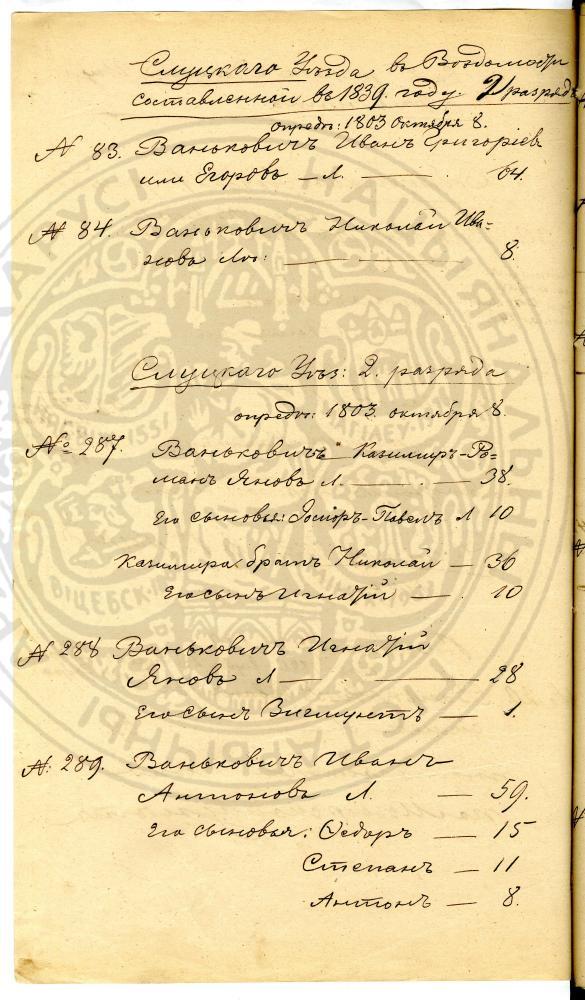 Слуцкаго Уѣзда въ Вѣдомости
составленной въ 1839. году. 2 разряда
опредѣ: 1803 Октября 8.
№ 83. Ваньковичъ Иванъ Григорьевъ
или Егоровъ — Л. — 64.
№ 84. Ваньковичъ Николай Ива-
новъ — 8.
Слуцкаго Уѣз: 2. разряда
опредѣ: 1803. октября 8.
№ 287. Ваньковичъ Казимиръ-Ро-
манъ Яновъ Л. — 38.
Его сыновья: -Павелъ Л 10
Казимира братъ Николай — 36
Его сынъ Игнатій — 10
№ 288 Ваньковичъ Игнатій
Яновъ Л — 28
Его сынъ Зигмунтъ — 1.
№: 289. Ваньковичъ Иванъ
Антоновъ Л. — 59.
Его сыновья: Ѳедоръ — 15
Степанъ — 11
Антонъ — 8.